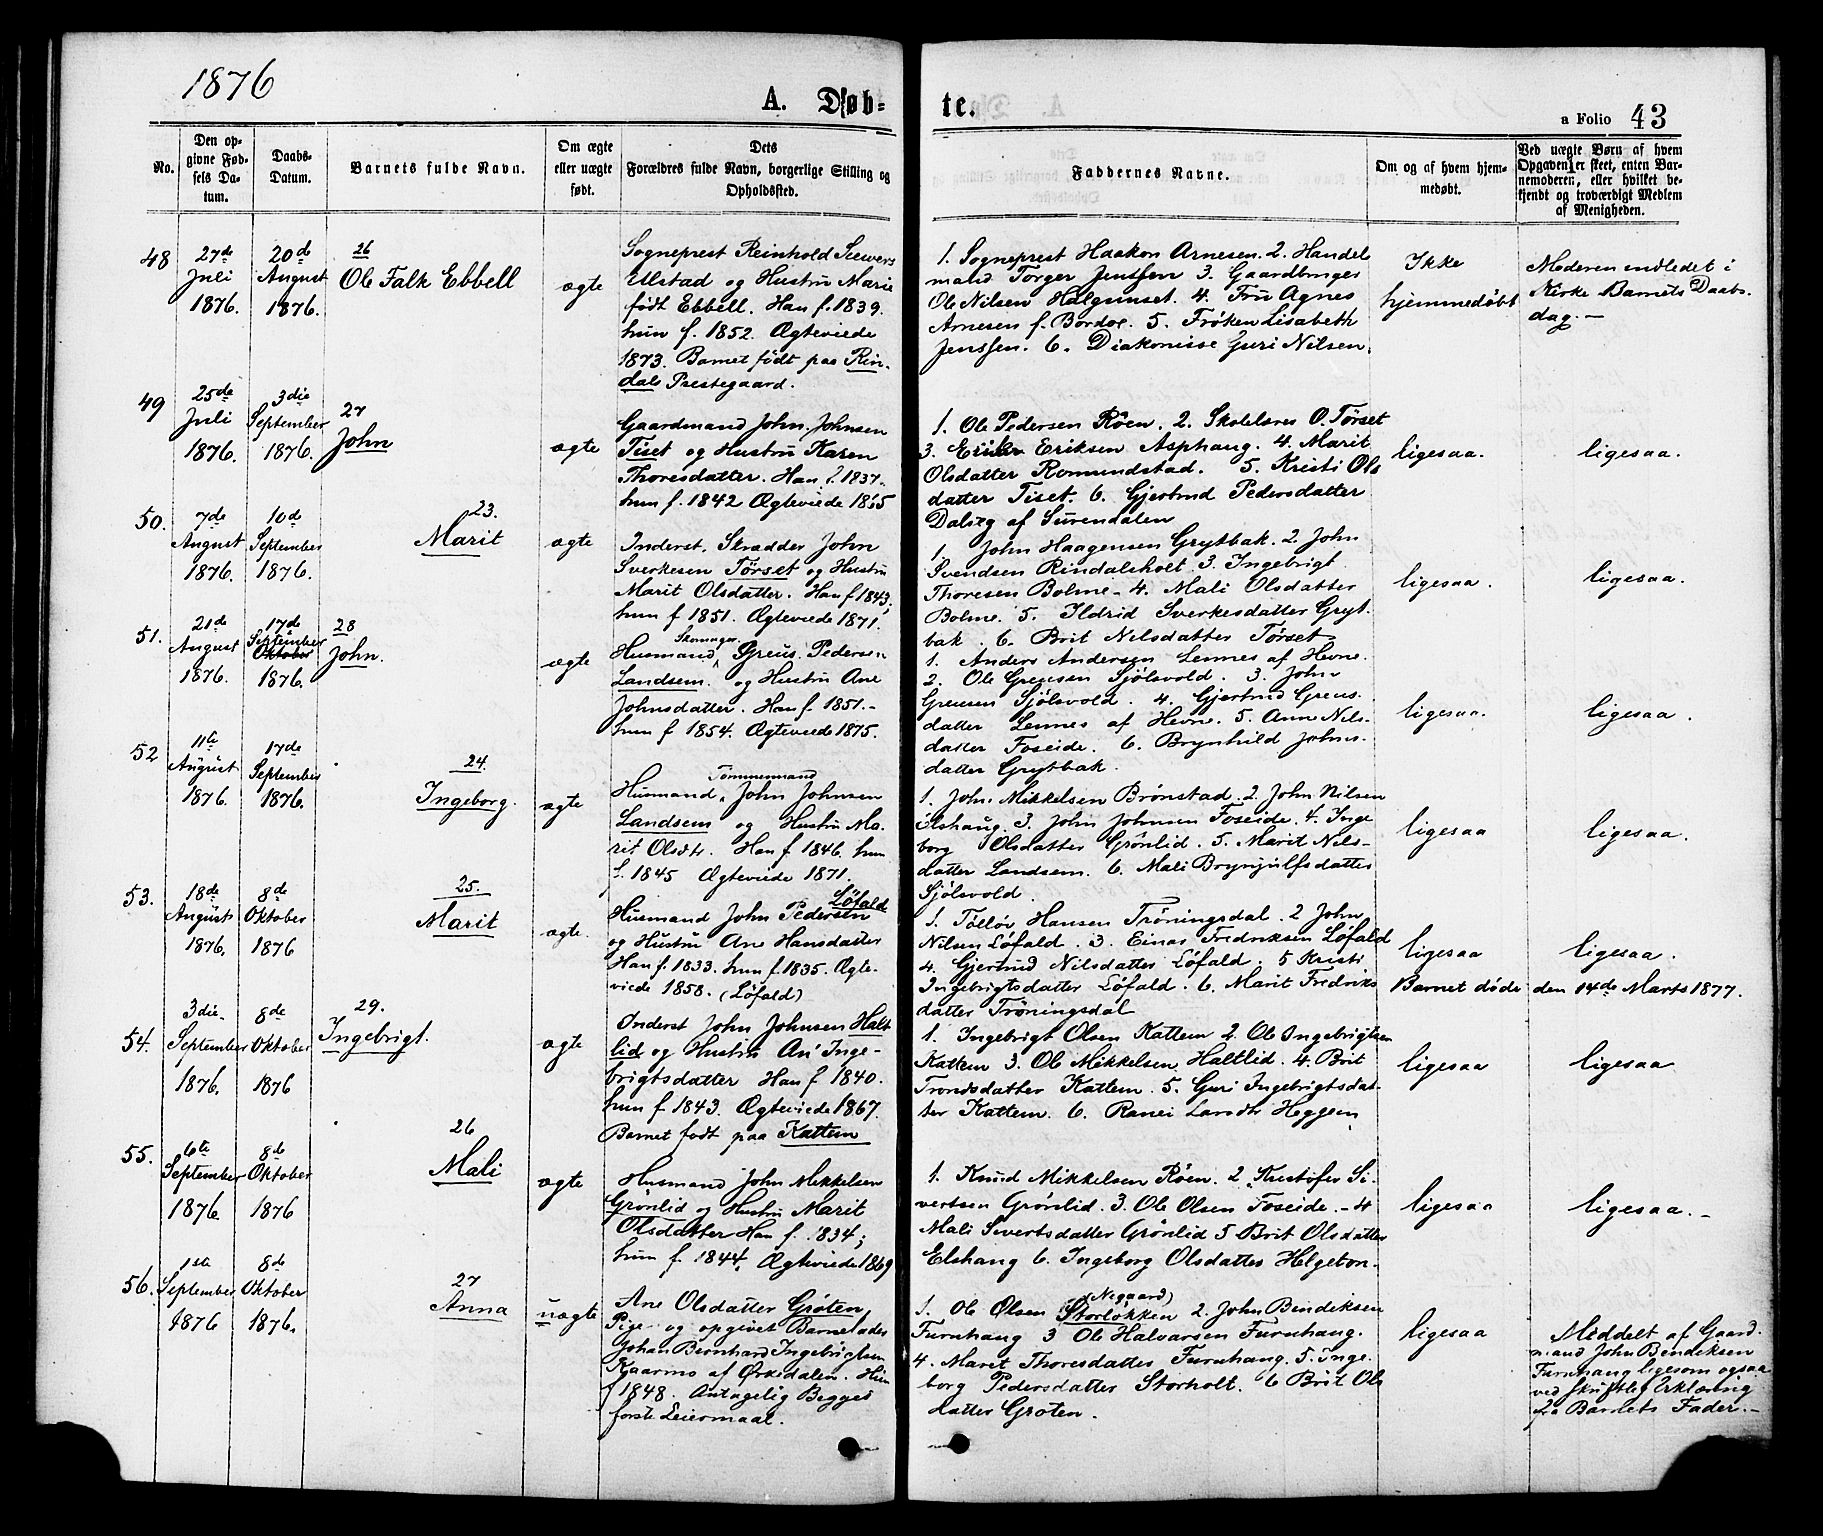 1876
A. Døb-
te.
a Folio 43
No.
Den op-
givne Fød-
sels Da-
tum.
Daabs-
Datum.
Barnets fulde Navn.
Om ægte
eller uægte
født.
Dets
Forældres fulde Navn, borgerlige Stilling og
Opholdssted.
Faddernes Navne.
Om og af hvem hjem-
medøbt.
Ved uægte Børn af hvem
Opgaven er skeet, enten Bar-
nemoderen, eller hvilket be-
kjendt og troværdigt Medlem
af Menigheden.
48
27de
Juli
1876.
20de
August
1876.
26
Ole Falk Ebbell
ægte
Sogneprest Reinhold Seewers
Ulstad og Hustru Marie
født Ebbell. Han f. 1839.
hun f. 1852. Ægteviede
1873. Barnet født paa Rin-
dals Prestegaard.
1. Sogneprest Haakon Arnesen. 2. Handel
mand Torger Jenssen 3. Gaardbruger
Ole Nilsen Halgunset. 4. Fru Agnes
Arnesen f. Bordoe. 5. Frøken Lisabeth
Jenssen. 6. Diakonisse Guri Nilsen.
Ikke
hjemmedøbt
Moderen indledet i
Kirke Barnets Daabs-
dag.-
49
25de
Juli
1876.
3die
September
1876.
27
John
ægte
Gaardmand John Johnsen
Tiset og Hustru Karen
Thoresdatter. Han f. 1837.
hun f. 1842 Ægteviede 1865
1. Ole Pedersen Röen. 2. Skolelærer O. Tørset
3. Erik Eriksen Asphaug. 4. Marit
Olsdatter Romundstad. 5. Kristi Ols
datter Tiset. 6. Gjertrud Pedersdatter
Dalseg af Surendalen
ligesaa.
ligesaa.
50.
7de
August
1876.
10de
September
1876.
23.
Marit
ægte
Inderst, Skrædder John
Sverkesen Tørset og Hustru
Marit Olsdatter. Han f 1843,
hun f 1851. Ægteviede 1871.
1. John Haagensen Grytbak. 2. John
Svendsen Rindalsholt. 3. Ingebrigt
Thoresen Bolme - 4. Mali Olsdatter
Bolme. 5. Ildrid Sverkesdatter Gryt-
bak. 6. Brit Nilsdatter Tørset
ligesaa.
ligesaa.
51.
21de
August
1876.
17de
September
Oktober
1876.
28
John.
ægte
Skomager
Husmand Greus Pedersen
Landsem. og Hustru Ane
Johnsdatter. Han f. 1851.-
hun f 1854. Ægteviede 1875.
1. Anders Andersen Lennes af Hevne.
2. Ole Greusen Sjölsvold. 3. John
Greusen Sjölsvold. 4. Gjertrud Greus-
datter Lennes af Hevne. 5. Anne Nils-
datter Foseide. 6. Brynhild Johns-
datter Grytbak.
ligesaa.
ligesaa.
52
11te
August
1876.
17de
September
1876.
24.
Ingeborg.
ægte
Tömmermand
Husmand, John Johnsen
Landsem og Hustru Ma-
rit Olsdtr. Han f. 1846. hun
f. 1845 Ægteviede 1871.
1. John Mikkelsen Brönstad. 2. John Nilsen
Elshaug. 3. John Johnsen Foseide. 4. Inge
borg Olsdatter Grönlid. 5. Marit Nils-
datter Landsem. 6. Mali Brynjulfsdatter
Sjölsvold.
ligesaa
ligesaa.
53.
18de
August
1876.
8de
Oktober
1876
25.
Marit
ægte.
Löfald
Husmand John Pedersen
og Hustru Ane Hansdatter
Han f. 1833. hun f. 1835. Ægte-
viede 1858. (Löfald)
1. Tollöv Hansen Tröningsdal. 2 John
Nilsen Löfald. 3. Einar Fredriksen Löfald
4. Gjertrud Nilsdatter Löfald. 5 Kristi
Ingebrigtsdatter Löfald. 6. Marit Fredriks
datter Tröningsdal
ligesaa
ligesaa.
Barnet døde den 14de Marts 1877.
54.
3die
September
1876.
8de
Oktober
1876
29.
Ingebrigt.
ægte
Inderst John Johnsen Halt
lid og Hustru An' Inge-
brigtsdatter Han f 1840.
hun f 1843. Ægteviede 1867.
Barnet født paa Kattem
1. Ingebrigt Olsen Kattem 2. Ole Ingebrigtsen
Kattem 3. Ole Mikkelsen Haltlid. 4. Brit
Trondsdatter Kattem. 5. Guri Ingebrigtsdat-
ter Kattem. 6. Ranei Larsdtr Heggem
ligesaa
ligesaa
55.
6te
September
1876.
8de
Oktober
1876
26
Mali
ægte
Husmand John Mikkelsen
Grönlid og Hustru Marit
Olsdatter Han f. 1834;
hun f. 1844. Ægteviede 1869
1. Knud Mikkelsen Röen. 2. Kristofer Si-
vertsen Grönlid. 3. Ole Olsen Foseide. - 4
Mali Sivertsdatter Grönlid 5 Brit Olsdatter
Elshaug 6. Ingeborg Olsdatter Helgeton.
ligesaa
ligesaa.-
56.
1ste
September
1876
8de
Oktober
1876.
27
Anna
uægte
Ane Olsdatter Gröten
Pige og opgivet Barnefader
Johan Bernhard Ingebrigtsen
Kjaarmo af Ørkedalen. Hun
f 1848. Antagelig Begges
første Leiermaal.
(Negaard)
1. Ole Olsen Storløkken 2. John Bendiksen
Furuhaug 3 Ole Halvarsen Furuhaug.
4. Marit Thoresdatter Furuhaug. 5. Inge-
borg Pedersdatter Storholt. 6 Brit Ols
datter Gröten.
ligesaa
Meddelt af Gaard-
mand John Bendiksen
Furuhaug ligesom ogsaa
ved skriftlig Erklæring
fra Barnets Fader.-